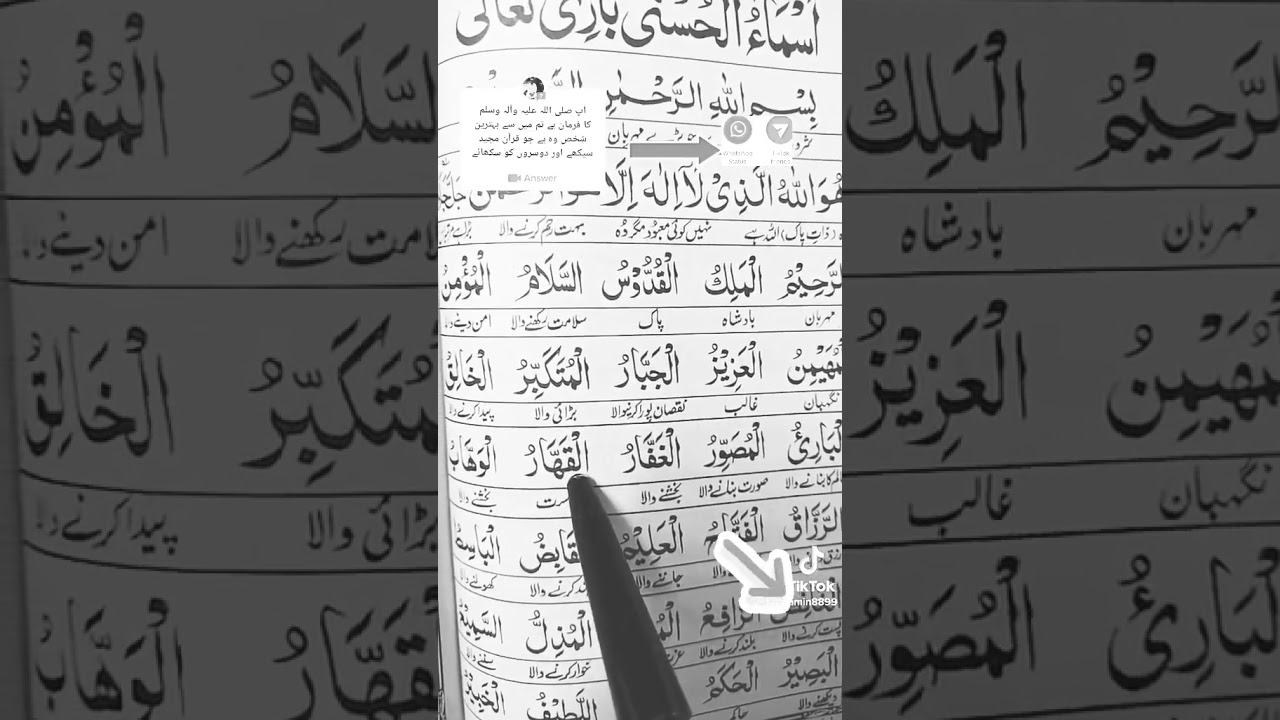 اَسْمَاءُ الْحُسْنٰى بَارِىْ تَعَالٰى
بِسْمِ اللهِ الرَّحْمٰنِ
آپ صلی اللہ علیہ وآلہ وسلم
کا فرمان ہے تم میں سے بہترین
شخص وہ ہے جو قرآن مجید
سیکھے اور دوسروں کو سکھائے
Answer
WhatsApp
Status
TikTok
friends
هُوَ اللهُ الَّذِىْ لَآ اِلٰهَ اِلَّا
(ذات پاک) اللہ ہے نہیں کوئی معبود مگر وہ بہت رحم کرنے والا
الرَّحِيْمُ الْمَلِكُ الْقُدُّوْسُ السَّلَامُ الْمُؤْمِنُ
مہربان بادشاہ پاک سلامت رکھنے والا امن دینے والا
الْمُهَيْمِنُ الْعَزِيْزُ الْجَبَّارُ الْمُتَكَبِّرُ الْخَالِقُ
نگہبان غالب نقصان پورا کرنیوالا بڑائی والا پیدا کرنے والا
الْبَارِئُ الْمُصَوِّرُ الْغَفَّارُ الْقَهَّارُ الْوَهَّابُ
صورت بنانے والا بخشنے والا بخشنے والا
الرَّزَّاقُ الْفَتَّاحُ الْعَلِيْمُ الْقَابِضُ الْبَاسِطُ
جاننے والا بند کرنے والا کھولنے والا
الرَّافِعُ الْمُذِلُّ السَّمِيْعُ
پست کرنے والا بلند کرنے والا خوار کرنے والا سننے والا
الْبَصِيْرُ الْحَكَمُ اللَّطِيْفُ الْخَبِيْرُ
دیکھنے والا حاکم
TikTok